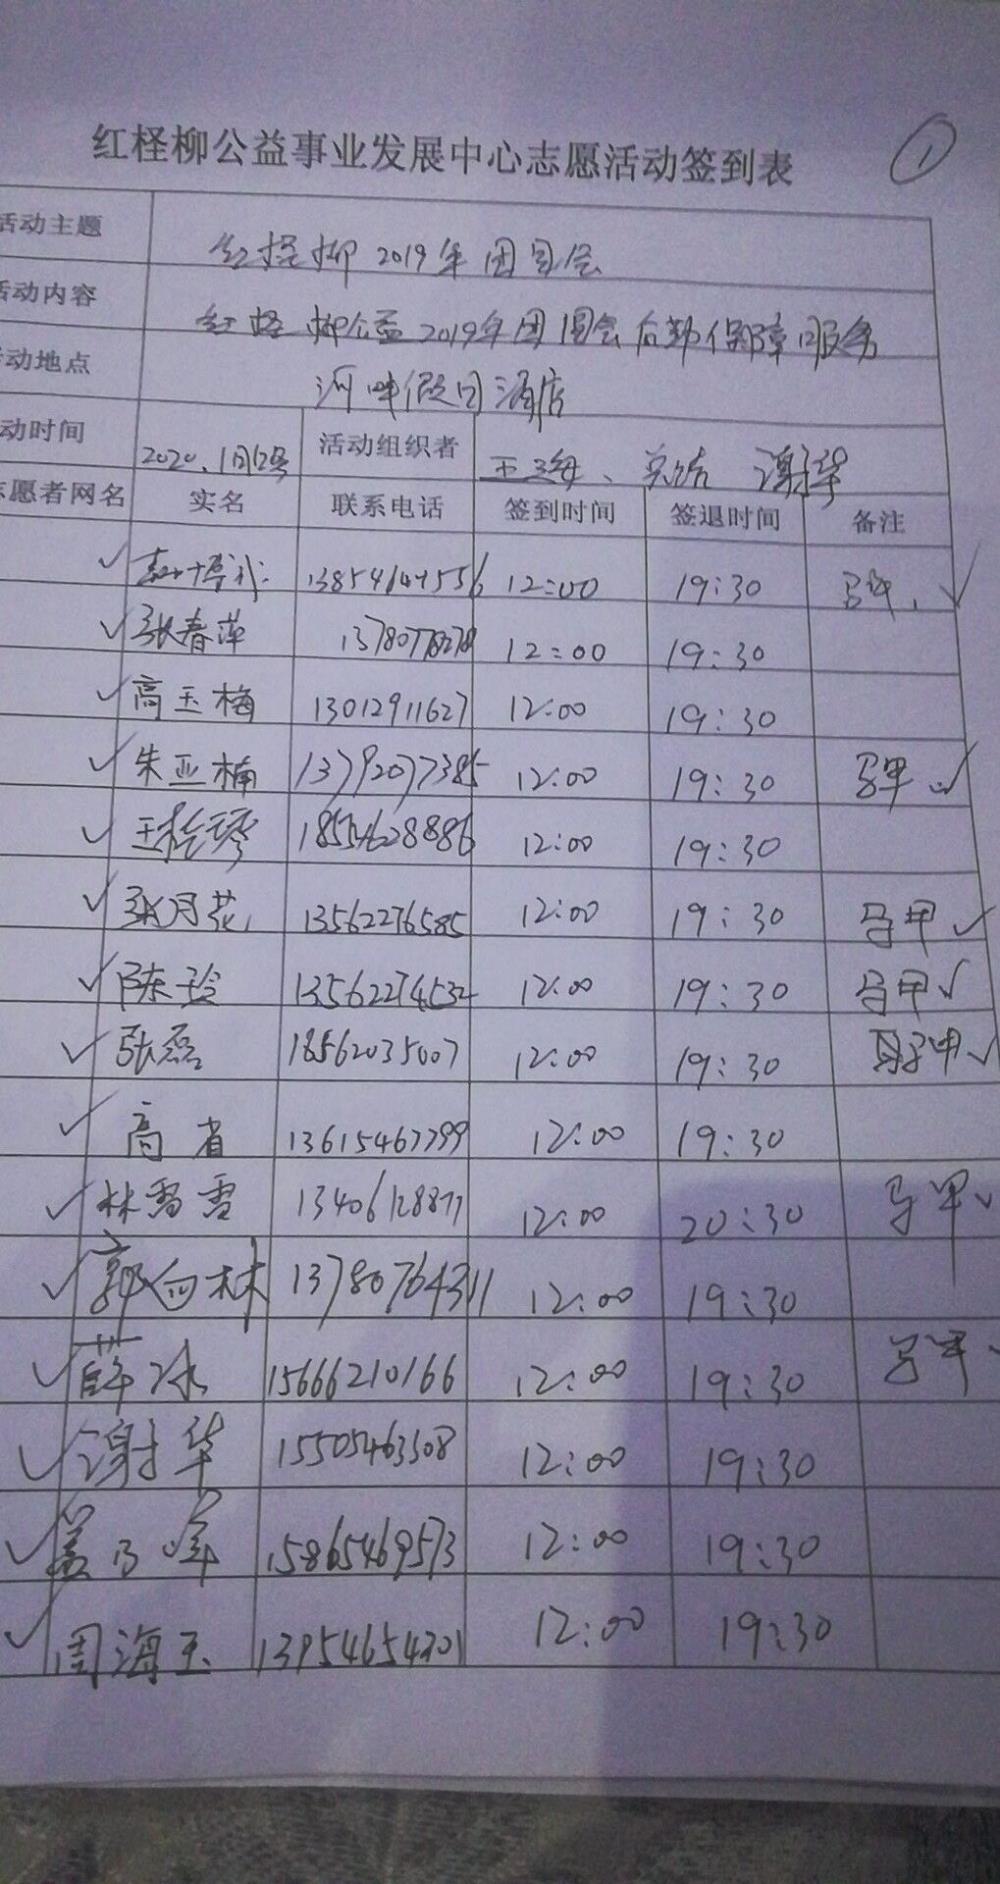 红柽柳公益事业发展中心志愿活动签到表 ①
活动主题 红柽柳2019年团圆会
活动内容 红柽柳公益2019年团圆会后勤保障服务
活动地点 河畔假日酒店
活动时间 2020.1月12号 活动组织者 王海、 谢华
志愿者网名 实名 联系电话 签到时间 签退时间 备注
✓ 12:00 19:30 马甲. ✓
✓ 张春萍 13780778278 12:00 19:30
✓ 高玉梅 13012911627 12:00 19:30
✓ 朱亚楠 13792077385 12:00 19:30 马甲 ✓
✓ 王桂琴 18554628886 12:00 19:30
✓ 张月花 13562276585 12:00 19:30 马甲 ✓
✓ 陈玲 13562274532 12:00 19:30 马甲 ✓
✓ 张磊 18562035007 12:00 19:30 马甲 ✓
✓ 高省 13615467799 12:00 19:30
✓ 林雪雪 13406128877 12:00 20:30 马甲 ✓
✓ 郭向林 13780764311 12:00 19:30
✓ 薛冰 15666210166 12:00 19:30 马甲
✓ 谢华 15505463508 12:00 19:30
✓ 盖乃峰 15865469573 12:00 19:30
✓ 周海玉 13954654301 12:00 19:30